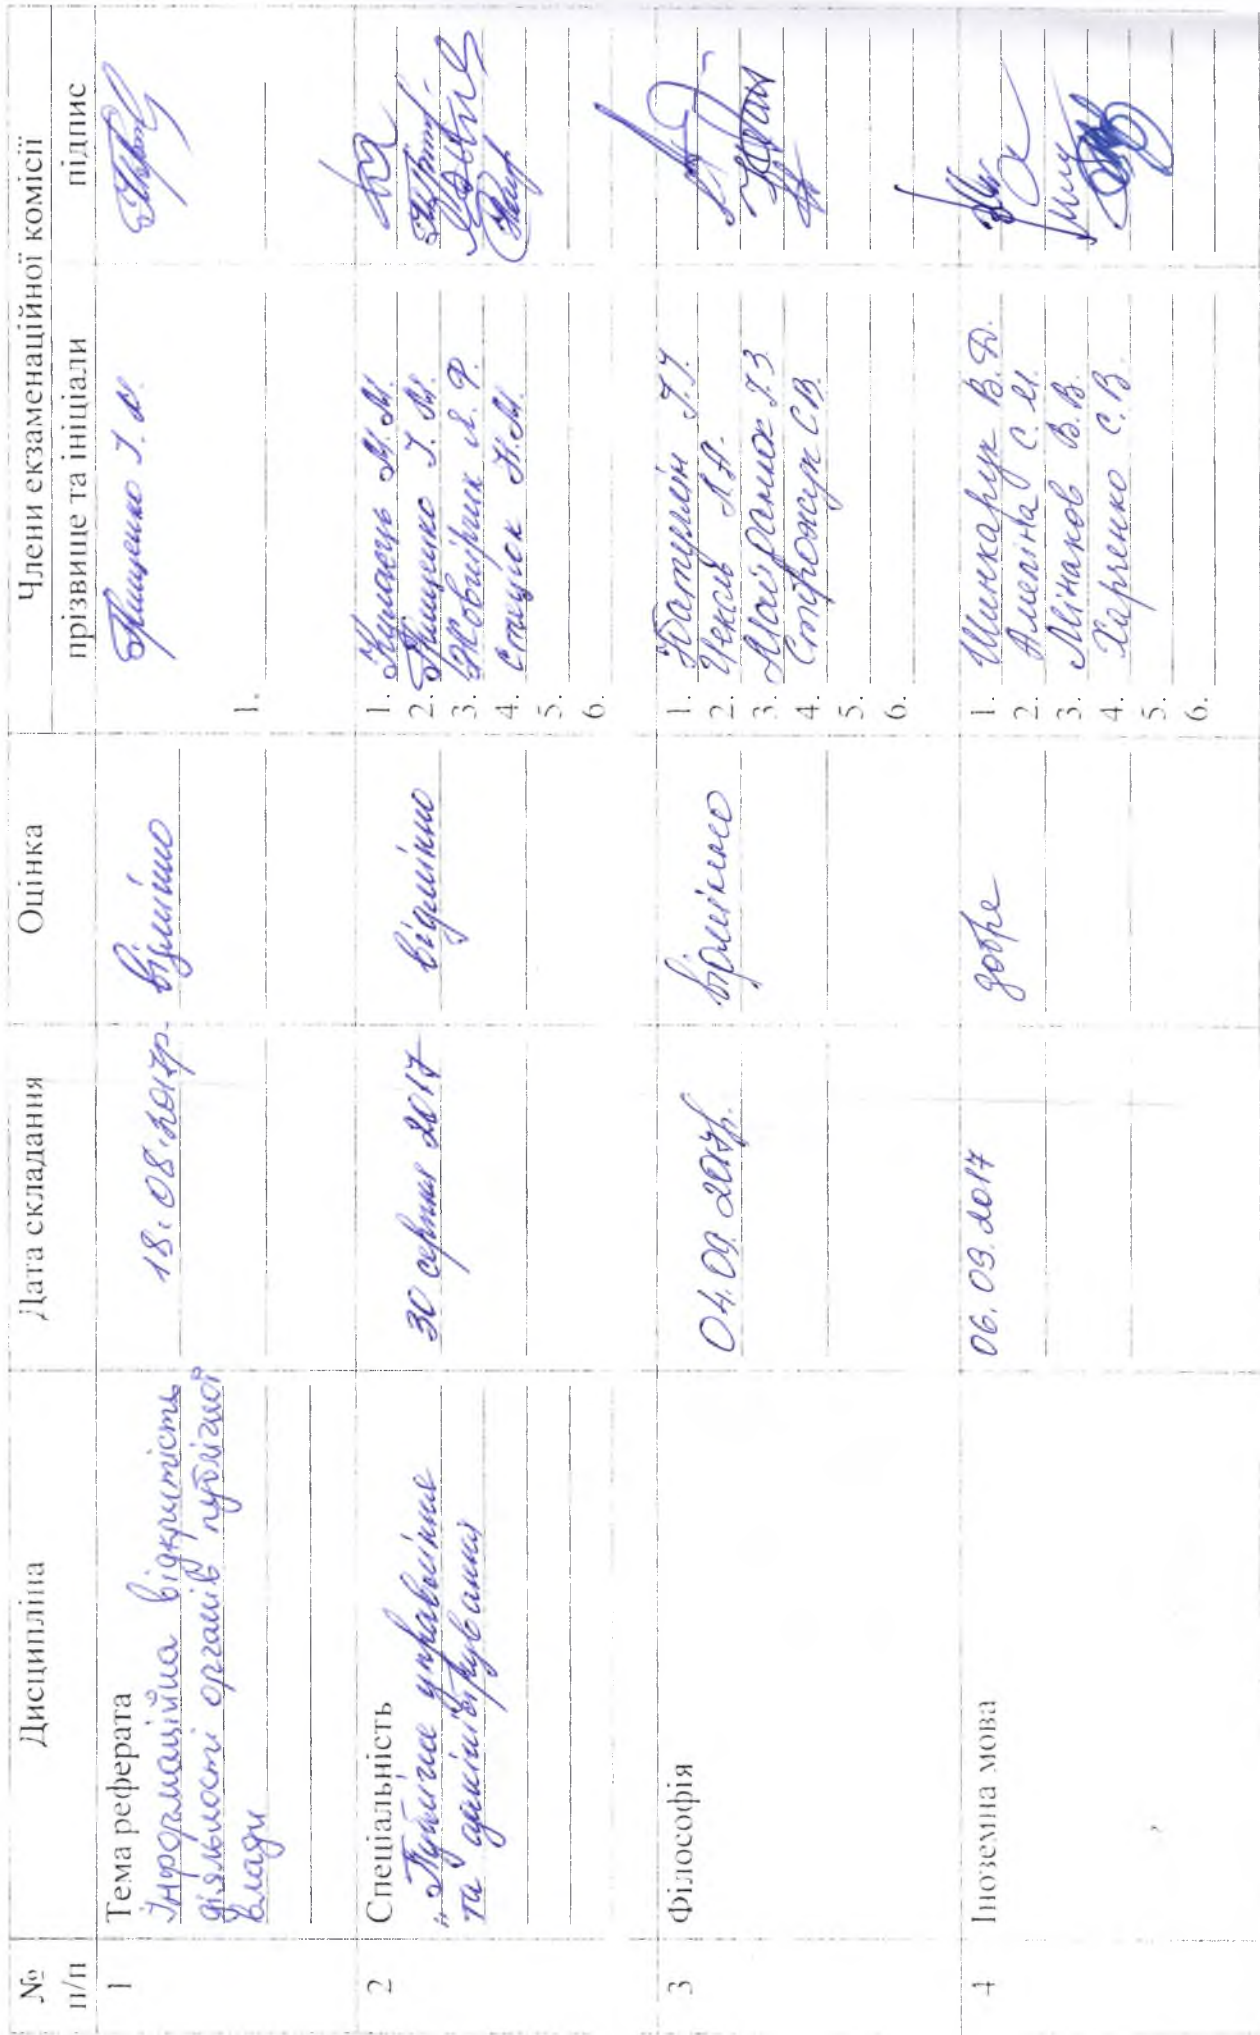 № п/п
Дисципліна
Дата складання
Оцінка
Члени екзаменаційної комісії
прізвище та ініціали
підпис
1
Тема реферата
Інформаційна відкритість
діяльності органів публічної
влади
18.08.2017р.
відмінно
Грищенко І. М.
1.
2
Спеціальність
„Публічне управління
та адміністрування
30 серпня 2017
відмінно
1. Кишень М. М.
2. Грищенко І. М.
3. Жовнірчик Я. Ф.
4. Стецюк Н. М.
5.
6.
3
Філософія
04.09.2017р.
відмінно
1. Батушин І. І.
2. Чекаль Л. А.
3.
4. Сторожук С. В.
5.
6.
4
Іноземна мова
06.09.2017
добре
1. Шинкарук В. Д.
2. Амеліна С. М.
3. Мінаков В. В.
4. Харченко С. В.
5.
6.